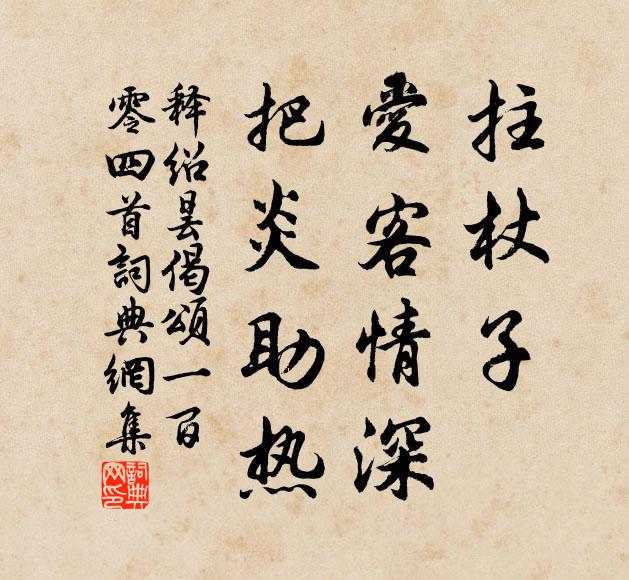 拄杖子
愛客情深
把炎助热
释绍昙偈頌一百
零四首詞典網集
詞典网印